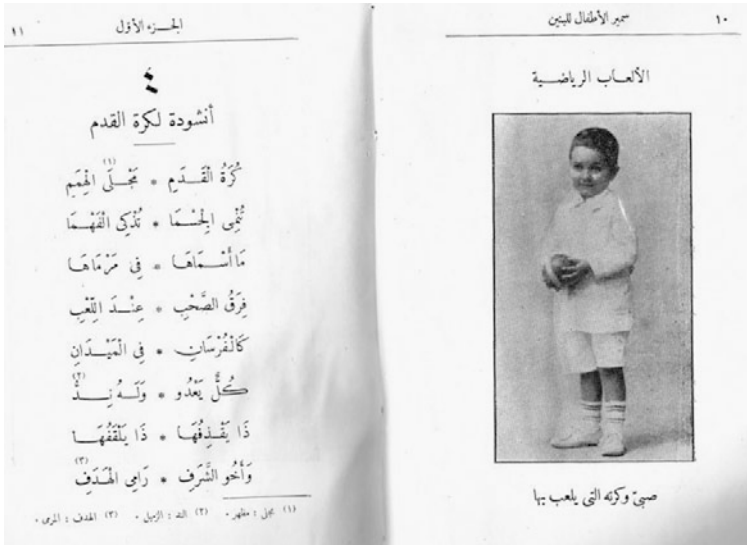 ١٠
سمير الأطفال للبنين
الألعاب الرياضية
صبيّ وكرته التى يلعب بها
الجزء الأوّل
١١
٤
أنشودة لكرة القدم
كُرَةُ الْقَدَمِ * مَجْلَى (١) الْهِمَمِ
تُنْمِى الْجِسْمَا * تُذْكِى الْفَهْمَا
مَا أَسْمَاهَا * فِى مَرْمَاهَا
فِرَقُ الصَّحْبِ * عِنْدَ اللَّعْبِ
كَالْفُرْسَانِ * فِى الْمَيْدَانِ
كُلٌّ يَعْدُو * وَلَهُ نِدٌّ (٢)
ذَا يَقْذِفُهَا * ذَا يَلْقَفُهَا
وَأَخُو الشَّرَفِ * رَامِى الْهَدَفِ (٣)
(١) مجلى : مظهر . (٢) الند : الزميل . (٣) الهدف : المرمى .